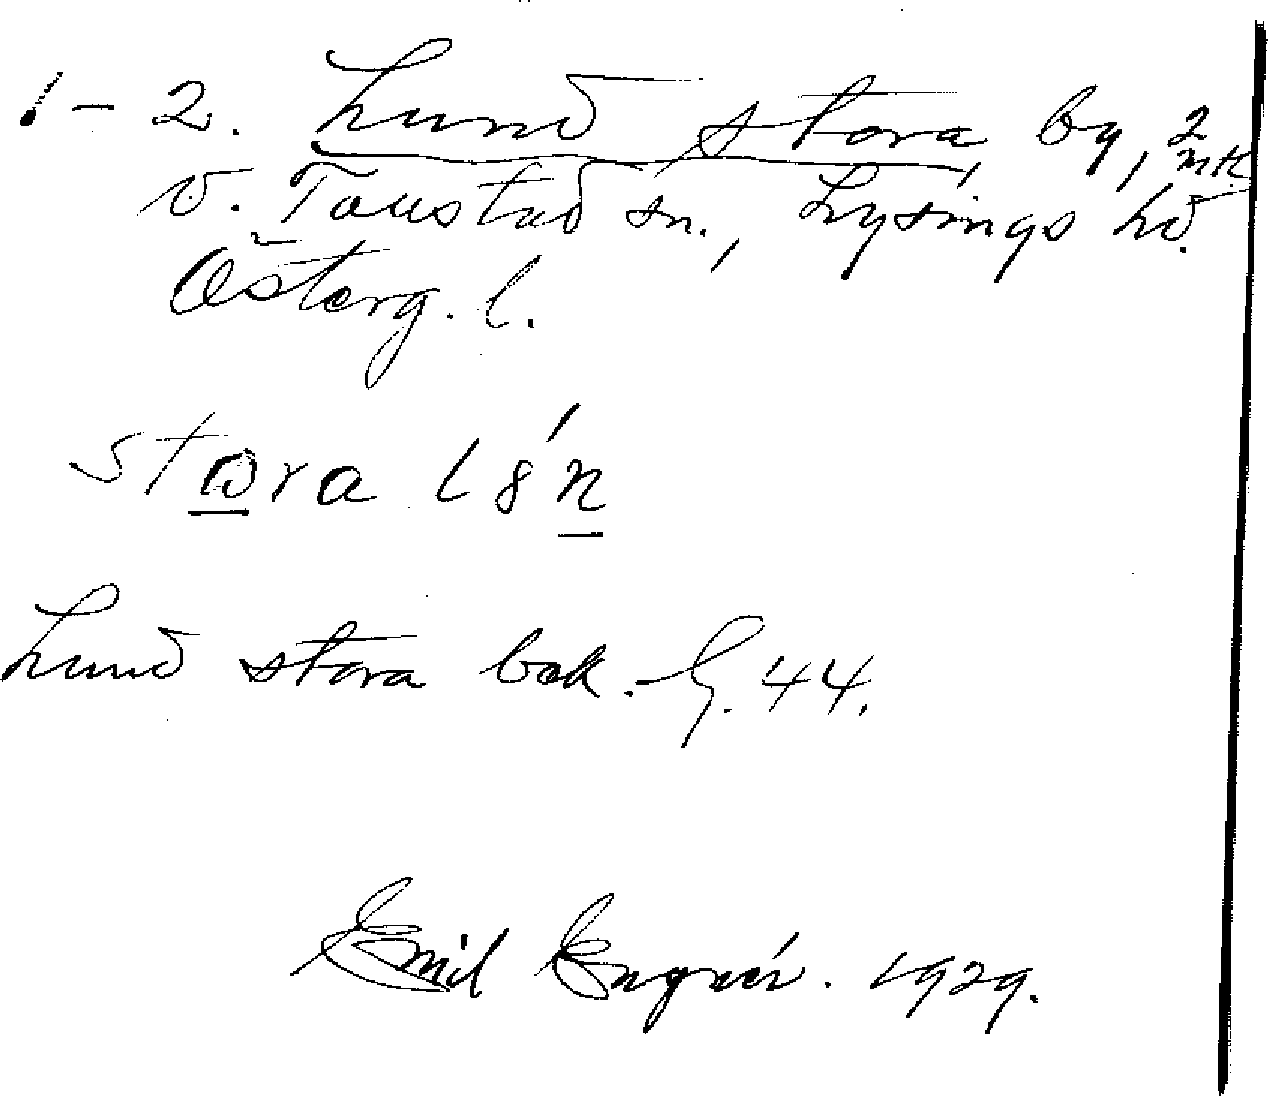 1-2. Lund stora, by, 2 mtl
V. Tollstad sn., Lysings hd.
Österg. l.
stɷra l8´n
Lund stora bok. - G. 44.
Emil 1929.